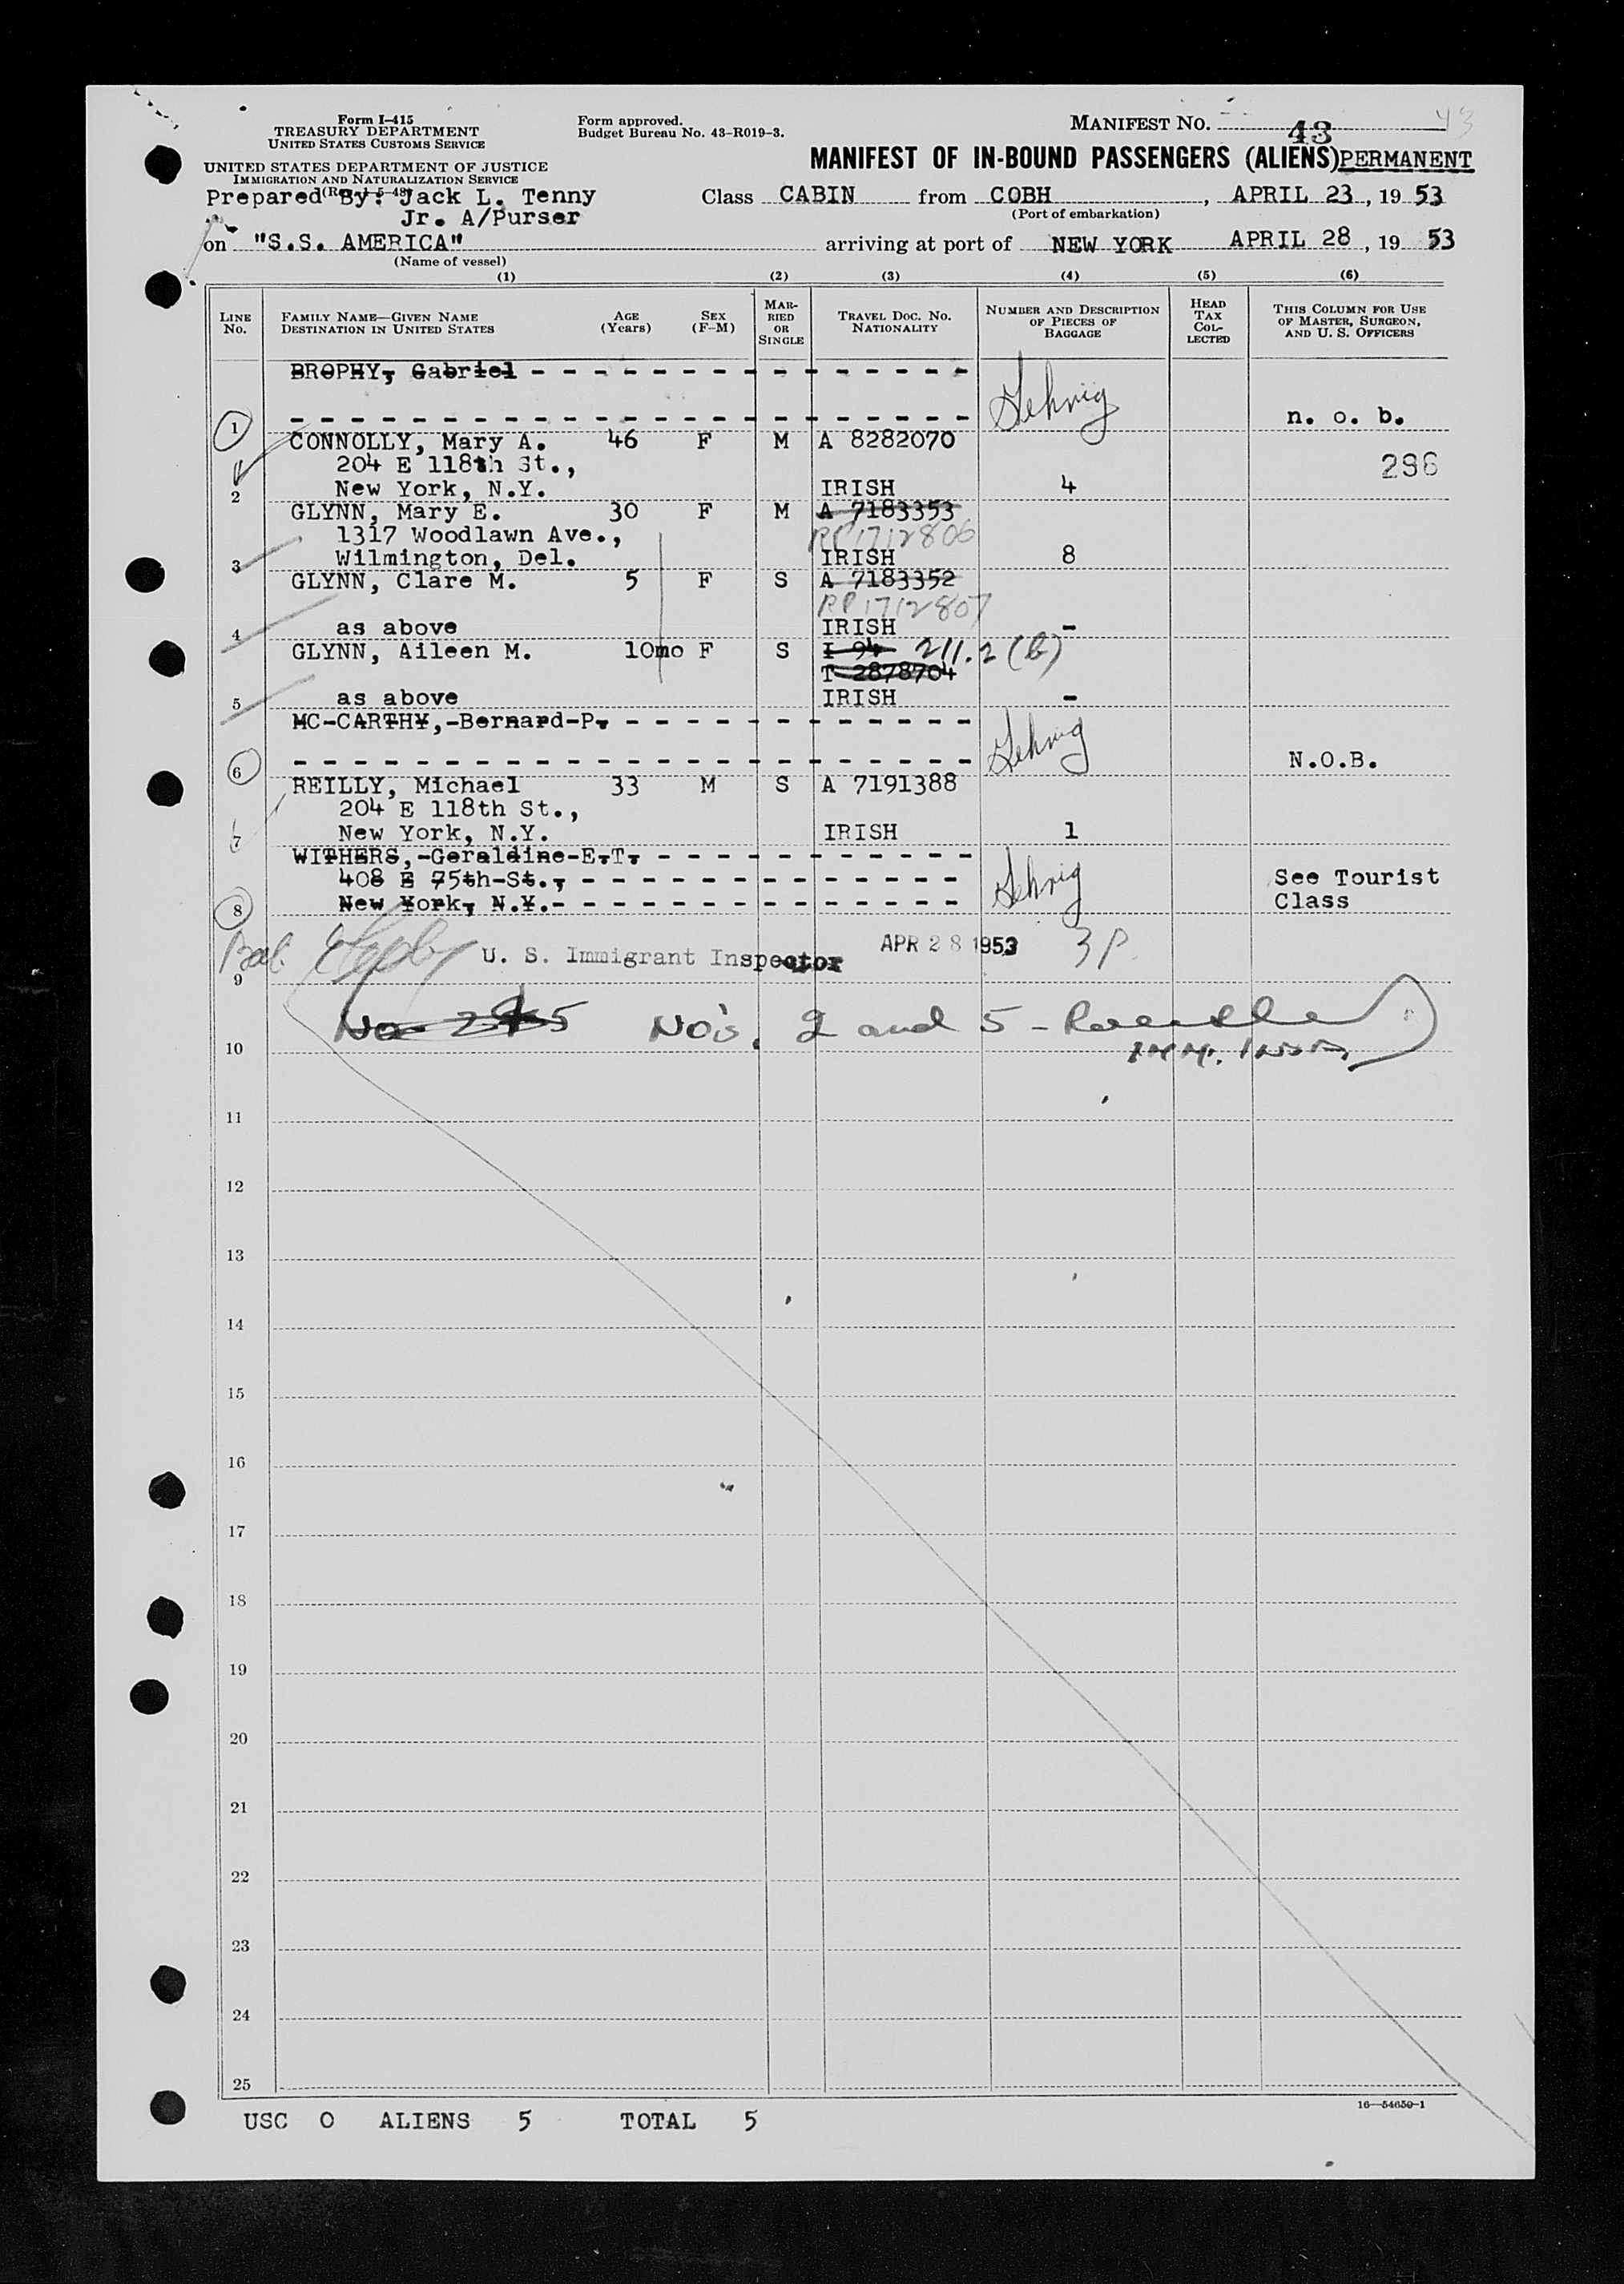 Form I-415
TREASURY DEPARTMENT
UNITED STATES CUSTOMS SERVICE
UNITED STATES DEPARTMENT OF JUSTICE
IMMIGRATION AND NATURALIZATION SERVICE
Form approved.
Budget Bureau No. 43-R019-3.
MANIFEST No. 43 43
MANIFEST OF IN-BOUND PASSENGERS (ALIENS) PERMANENT
Prepared By: Jack L. Tenny
Jr. A/Purser
Class CABIN from COBH, APRIL 23, 19 53
(Port of embarkation)
on "S.S. AMERICA" arriving at port of NEW YORK APRIL 28, 19 53
(Name of vessel)
(1) (2) (3) (4) (5) (6)
LINE No.
FAMILY NAME—GIVEN NAME
DESTINATION IN UNITED STATES
AGE (Years)
SEX (F-M)
MARRIED OR SINGLE
TRAVEL DOC. NO.
NATIONALITY
NUMBER AND DESCRIPTION OF PIECES OF BAGGAGE
HEAD TAX COLLECTED
THIS COLUMN FOR USE OF MASTER, SURGEON, AND U. S. OFFICERS
BROPHY, Gabriel
1 n. o. b.
CONNOLLY, Mary A. 46 F M A 8282070
204 E 118th St., 296
2 New York, N.Y. IRISH 4
GLYNN, Mary E. 30 F M A 7183353
1317 Woodlawn Ave., RP1712806
3 Wilmington, Del. IRISH 8
GLYNN, Clare M. 5 F S A 7183352
RP1712807
4 as above IRISH -
GLYNN, Aileen M. 10mo F S I 94 211.2 (b)
T 2878704
5 as above IRISH -
MC-CARTHY,-Bernard-P.
6 N.O.B.
REILLY, Michael 33 M S A 7191388
204 E 118th St.,
7 New York, N.Y. IRISH 1
WITHERS,-Geraldine-E.T.
408 E 75th-St., See Tourist
8 New York, N.Y. Class
Bal. U. S. Immigrant Inspector APR 28 1953 3 P.
9
No's. 2 and 5 -
10 IMM. INSP.
11
12
13
14
15
16
17
18
19
20
21
22
23
24
25
16—54650-1
USC 0 ALIENS 5 TOTAL 5